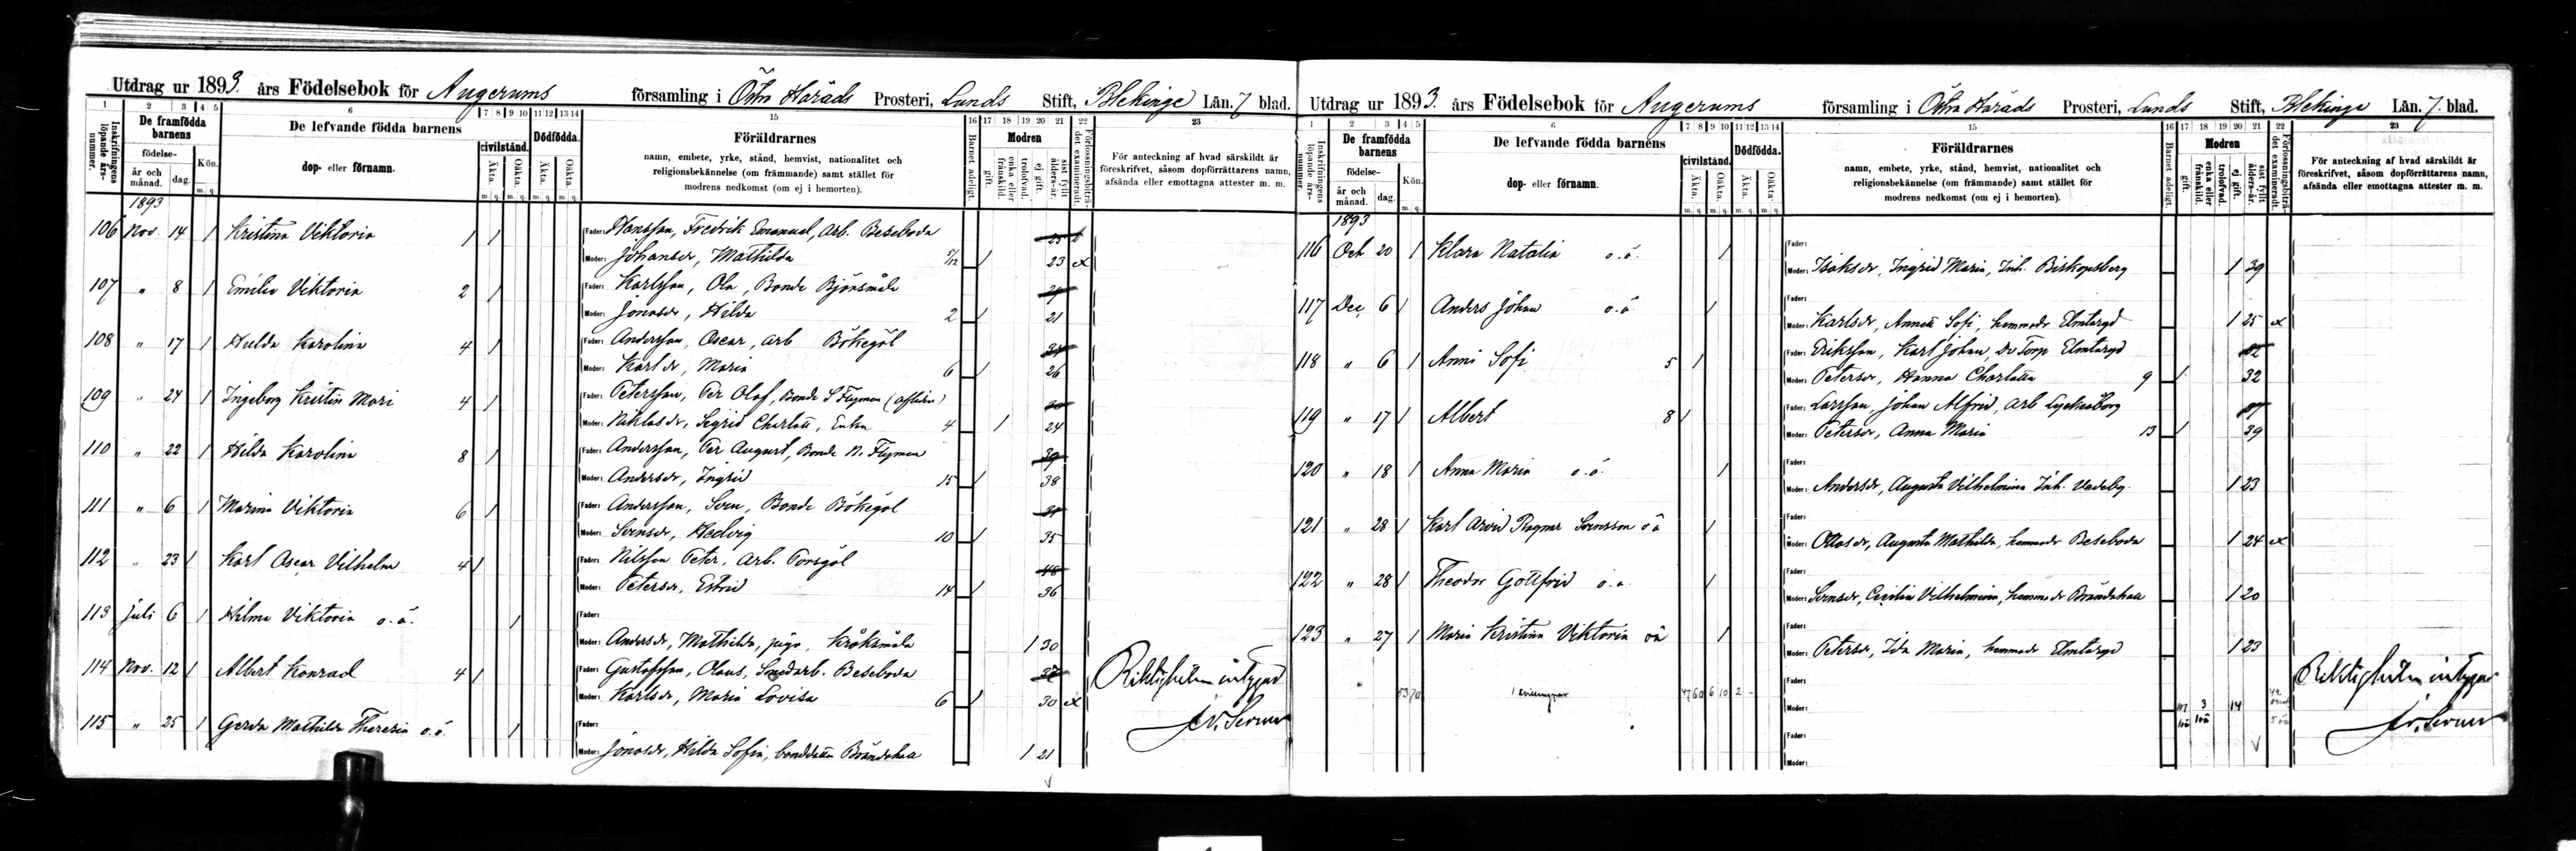 Utdrag ur 1893 års Födelsebok för Augerums församling i Östra Härads Prosteri, Lunds Stift, Blekinge Län. 7 blad.
1 2 3 4 5 6 7 8 9 10 11 12 13 14 15 16 17 18 19 20 21 22 23
Inskrifningens löpande års-nummer.
De framfödda barnens
födelse-
år och månad.
dag.
Kön.
m. q.
De lefvande födda barnens
dop- eller förnamn.
civilstånd.
Äkta.
Oäkta.
Dödfödda.
Äkta.
Oäkta.
Föräldrarnes
namn, embete, yrke, stånd, hemvist, nationalitet och
religionsbekännelse (om främmande) samt stället för
modrens nedkomst (om ej i hemorten).
Barnet adeligt.
Modren
gift.
enka eller frånskild.
trolofvad.
ej gift.
sist fyllt ålders-år.
Förlossningsbiträdet examineradt.
För anteckning af hvad särskildt är
föreskrifvet, såsom dopförrättarens namn,
afsända eller emottagna attester m. m.
1893
106 Nov. 14 1 Kristina Viktoria 1 1 Fader: Hansson, Fredrik Emanuel, Arb. Beseboda 25
Moder: Johansdr, Mathilda 1 23 ex
107 " 8 1 Emilie Viktoria 2 1 Fader: Karlsson, Ola, Bonde Björsmåla
Moder: Jonasdr, Hilda 2 1 21
108 " 17 1 Hulda Karolina 4 1 Fader: Andersson, Oscar, Arb Bökegöl
Moder: Karlsdr, Maria 6 1 26
109 " 24 1 Ingeborg Kristin Mari 4 1 Fader: Petersson, Per Olof, Bonde S Flymen (afliden)
Moder: Niklasdr, Sigrid Charlott, Enka 4 1 24
110 " 22 1 Hilda Karolina 8 1 Fader: Andersson, Per August, Bonde N. Flymen 39
Moder: Andersdr, Ingrid 15 1 38
111 " 6 1 Marina Viktoria 6 1 Fader: Andersson, Sven, Bonde Bökegöl
Moder: Svensdr, Hedvig 10 1 35
112 " 23 1 Karl Oscar Vilhelm 4 1 Fader: Nilsson Peter, Arb.
Moder: Petersdr, Estrid 14 1 36
113 Juli 6 1 Hilma Viktoria o.ä. 1 Fader:
Moder: Andersdr, Mathilda, piga, Kroksmåla 1 30
114 Nov. 12 1 Albert Konrad 4 1 Fader: Gustafsson, Olaus, Smedarb. Beseboda
Moder: Karlsdr, Maria Lovisa 6 1 30 ex
115 " 25 1 Gerda Mathilda Theresia o.ä 1 Fader:
Moder: Jonasdr, Hilda Sofia, Brändahall 1 21
Riktigheten intygas
Utdrag ur 1893. års Födelsebok för Augerums församling i Östra Härads Prosteri, Lunds Stift, Blekinge Län. 7. blad.
1 2 3 4 5 6 7 8 9 10 11 12 13 14 15 16 17 18 19 20 21 22 23
Inskrifningens löpande års-nummer.
De framfödda barnens
födelse-
år och månad.
dag.
Kön.
m. q.
De lefvande födda barnens
dop- eller förnamn.
civilstånd.
Äkta.
Oäkta.
Dödfödda.
Äkta.
Oäkta.
Föräldrarnes
namn, embete, yrke, stånd, hemvist, nationalitet och
religionsbekännelse (om främmande) samt stället för
modrens nedkomst (om ej i hemorten).
Barnet adeligt.
Modren
gift.
enka eller frånskild.
trolofvad.
ej gift.
sist fyllt ålders-år.
Förlossningsbiträdet examineradt.
För anteckning af hvad särskildt är
föreskrifvet, såsom dopförrättarens namn,
afsända eller emottagna attester m. m.
1893
116 Oct 20 1 Klara Natalia o.ä. 1 Fader:
Moder: Isaksdr, Ingrid Maria, Inh. Biskopsberg 1 39
117 Dec. 6 1 Anders Johan o.ä 1 Fader:
Moder: Karlsdr, Anna Sofi, hemmadr Elmtaryd 1 25 ex
118 " 6 1 Anni Sofi 5 1 Fader: Eriksson, Karl Johan, Torp Elmtaryd
Moder: Petersdr, Hanna Charlotta 9 1 32
119 " 17 1 Albert 8 1 Fader: Larsson, Johan Alfrid, Arb Lyckåborg
Moder: Petersdr, Anna Maria 13 1 39
120 " 18 1 Anna Maria o.ä. 1 Fader:
Moder: Andersdr, Augusta Vilhelmina Inh. Vedeby. 1 23
121 " 28 1 Karl Arvid Ragnar Svensson o ä 1 Fader:
Moder: Olasdr, Augusta Mathilda, hemmadr Beseboda 1 24 ex
122 " 28 1 Theodor Gottfrid o.ä. 1 Fader:
Moder: Svensdr, Cecilia Vilhelmina, hemmadr Brändahall 1 20
123 " 27 1 Maria Kristina Viktoria oä 1 Fader:
Moder: Petersdr, Ida Maria, hemmadr Elmtaryd 1 23
53 70 1 tvillingpar 47 60 6 10 2 - Fader:
Moder: 107 3 14
Fader:
Moder:
Riktigheten intygas